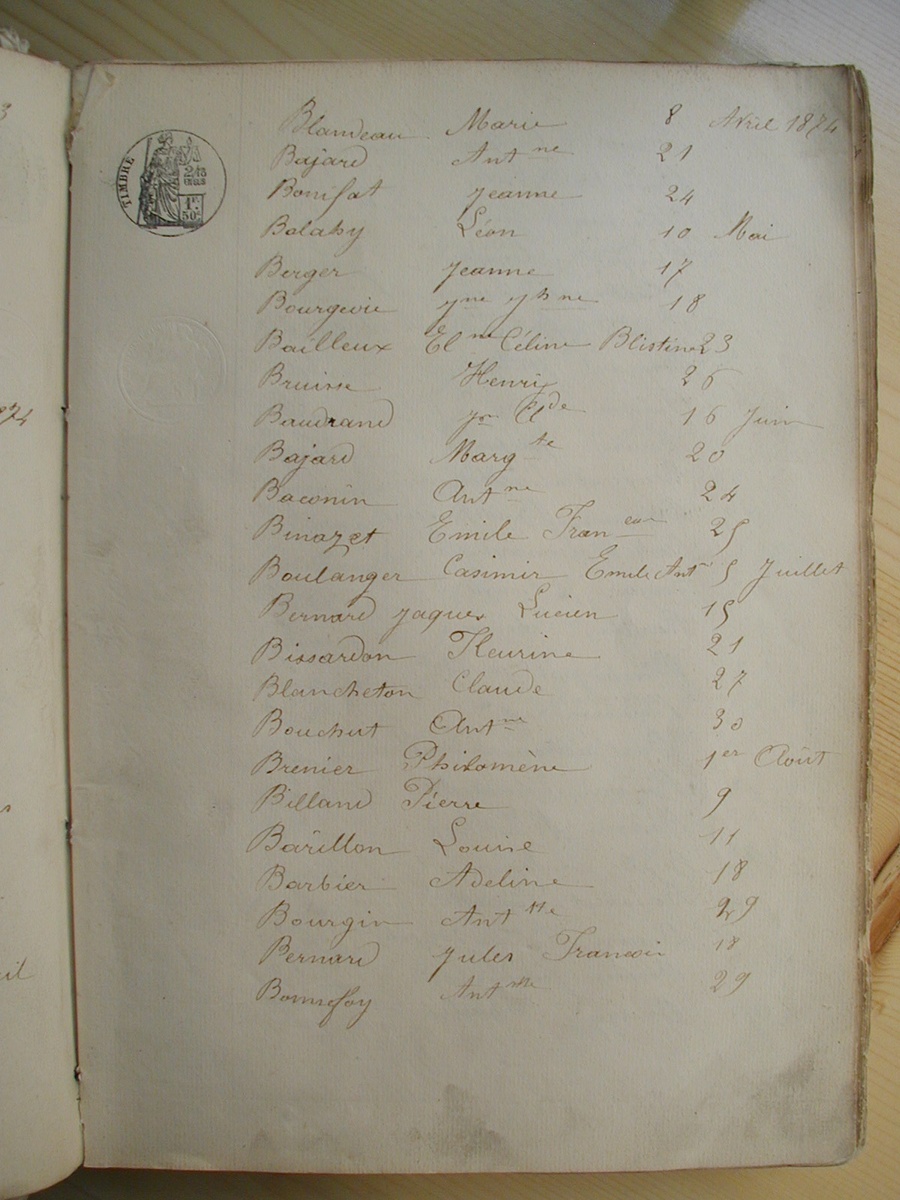 3
TIMBRE
2/10
EN SUS
1F.
50C.
Blandeau Marie 8 Avril 1874
Bajard Antne 21
Bonifat Jeanne 24
Balahy Léon 10 Mai
Berger Jeanne 17
Bourgevie Jne Jhne 18
Bailleux Elne Céline Blistine 23
Bruisse Henri 26
Baudrand Jn Clde 16 Juin
Bajard Margte 20
Baconin Antne 24
Binazet Emile Fran 25
Boulanger Casimir Emile Ant 5 Juillet
Bernard Jaques Lucien 15
Bissardon Fleurine 21
Blancheton Claude 27
Bouchut Antne 30
Brenier Philomène 1er Août
Billand Pierre 9
Barillon Louise 11
Barbier Adeline 18
Bourgin Anttte 29
Bernard Jules Francois 18
Bonnefoy Ant 29